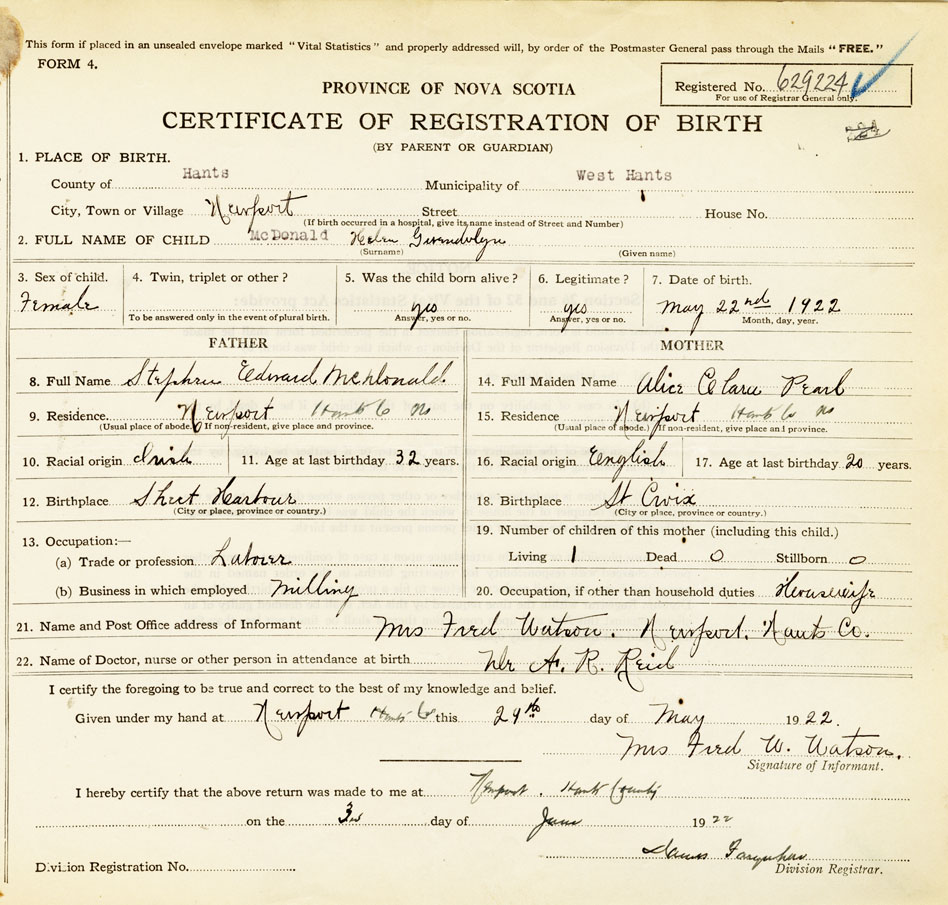 This form if placed in an unsealed envelope marked "Vital Statistics" and properly addressed will, by order of the Postmaster General pass through the Mails "FREE."
FORM 4.
Registered No. 629224
For use of Registrar General only.
PROVINCE OF NOVA SCOTIA
CERTIFICATE OF REGISTRATION OF BIRTH
(BY PARENT OR GUARDIAN)
1. PLACE OF BIRTH.
County of Hants Municipality of West Hants
City, Town or Village Newport Street House No.
(If birth occurred in a hospital, give its name instead of Street and Number)
2. FULL NAME OF CHILD McDonald Helen Gwendolyn
(Surname) (Given name)
3. Sex of child. 4. Twin, triplet or other? 5. Was the child born alive? 6. Legitimate? 7. Date of birth.
Female yes yes May 22nd 1922
To be answered only in the event of plural birth. Answer, yes or no. Answer, yes or no. Month, day, year.
FATHER MOTHER
8. Full Name Stephen Edward McDonald 14. Full Maiden Name Alice Clara Pearl
9. Residence Newport Hants Co NS 15. Residence Newport Hants Co NS
(Usual place of abode.) If non-resident, give place and province. (Usual place of abode.) If non-resident, give place and province.
10. Racial origin Irish 11. Age at last birthday 32 years. 16. Racial origin English 17. Age at last birthday 20 years.
12. Birthplace Sheet Harbour 18. Birthplace St Croix
(City or place, province or country.) (City or place, province or country.)
13. Occupation:— 19. Number of children of this mother (including this child.)
(a) Trade or profession Laborer Living 1 Dead 0 Stillborn 0
(b) Business in which employed Milling 20. Occupation, if other than household duties Housewife
21. Name and Post Office address of Informant Mrs Fred Watson. Newport. Hants Co.
22. Name of Doctor, nurse or other person in attendance at birth Dr A. R. Reid
I certify the foregoing to be true and correct to the best of my knowledge and belief.
Given under my hand at Newport Hants Co this 29th day of May 1922.
Mrs Fred W. Watson.
Signature of Informant.
I hereby certify that the above return was made to me at Newport. Hants County
on the 3rd day of June 1922
James Farquhar
Division Registrar.
Division Registration No.